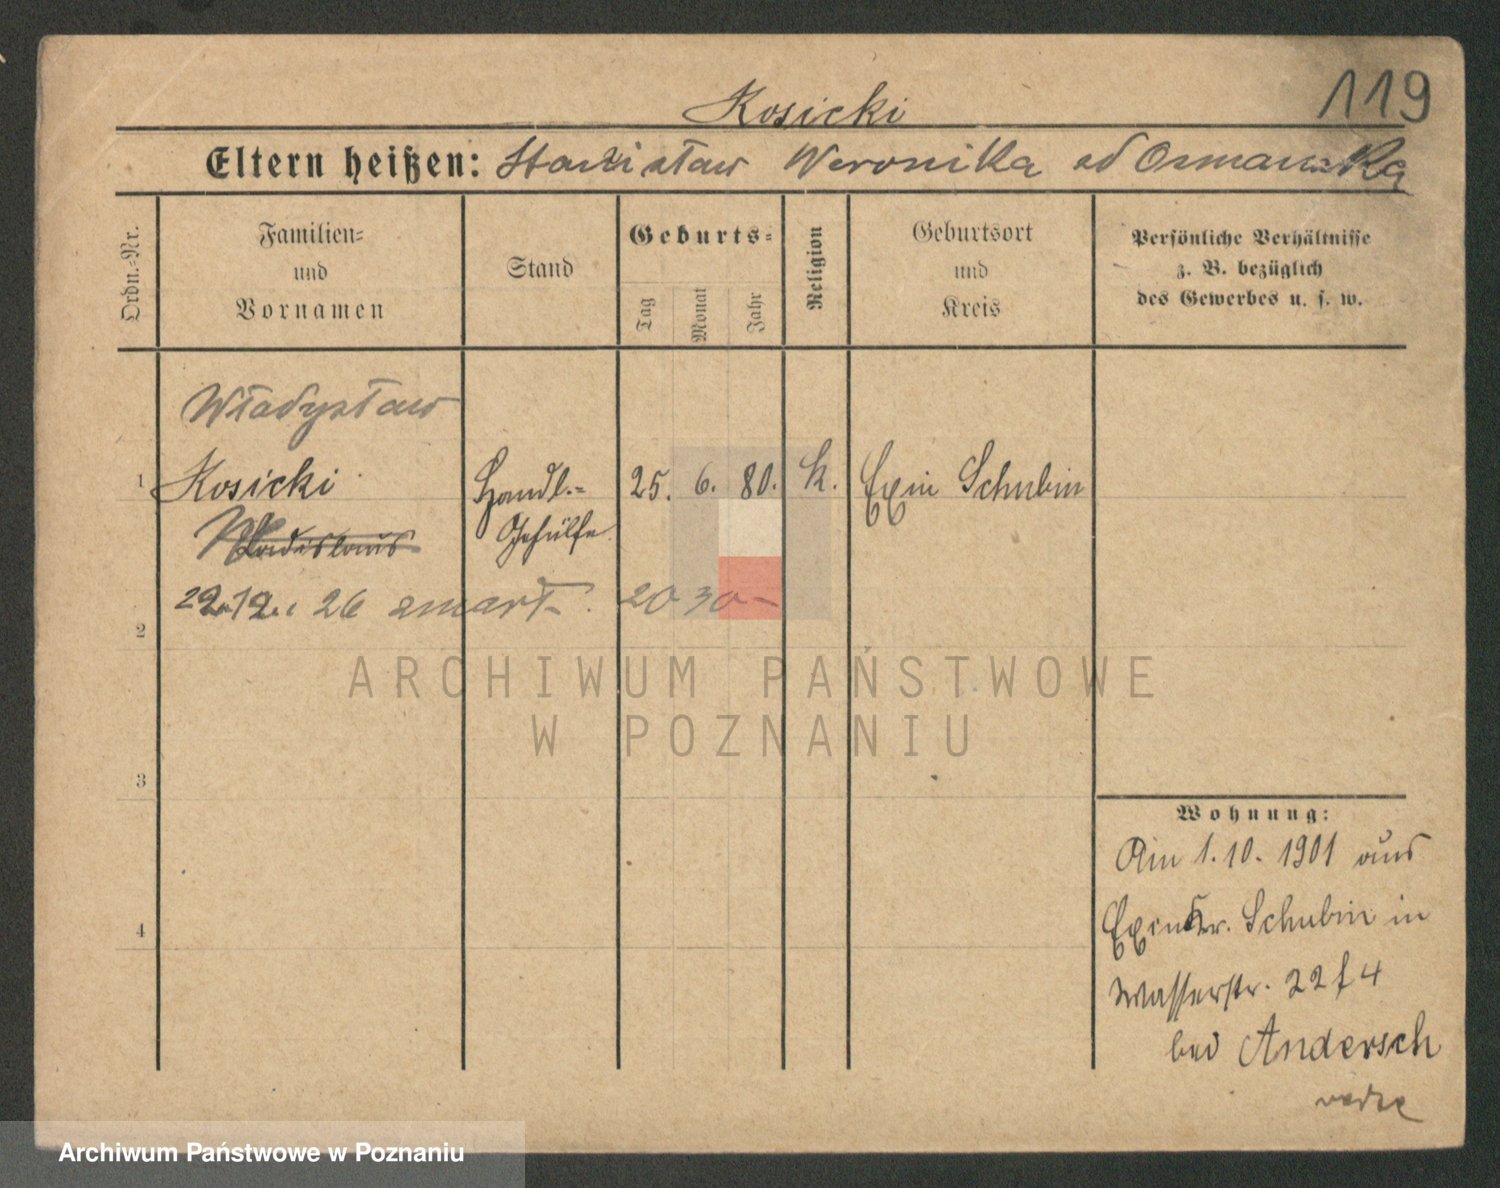 119
Kosicki
Eltern heißen: Stanisław Weronika
Ordn.=Nr.
Familien=
und
Vornamen
Stand
Geburts=
Tag
Monat
Jahr
Religion
Geburtsort
und
Kreis
Persönliche Verhältnisse
z. B. bezüglich
des Gewerbes u. s. w.
Władysław
1 Kosicki Handl.= 25. 6. 80. k. Exin Schubin
Wladislaus Gehülfe
26 zmarł 20 30
2
3
4
Wohnung:
Am 1.10. 1901 aus
Exin Kr. Schubin in
Wasserstr. 22 f 4
bei Andersch
ARCHIWUM PAŃSTWOWE
W POZNANIU
Archiwum Państwowe w Poznaniu